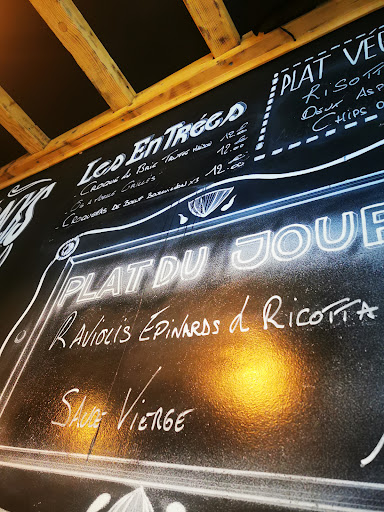 Les Entrées
Croque d Brie Truffe maison 12 €
Os à moelle Grillés 12.00
Croquettes de Boeuf Bourguignon x3 12.00
PLAT VE
Risott
Deux Asp
Chips d
PLAT DU JOUR
Raviolis Epinards d Ricotta
Sauce Vierge